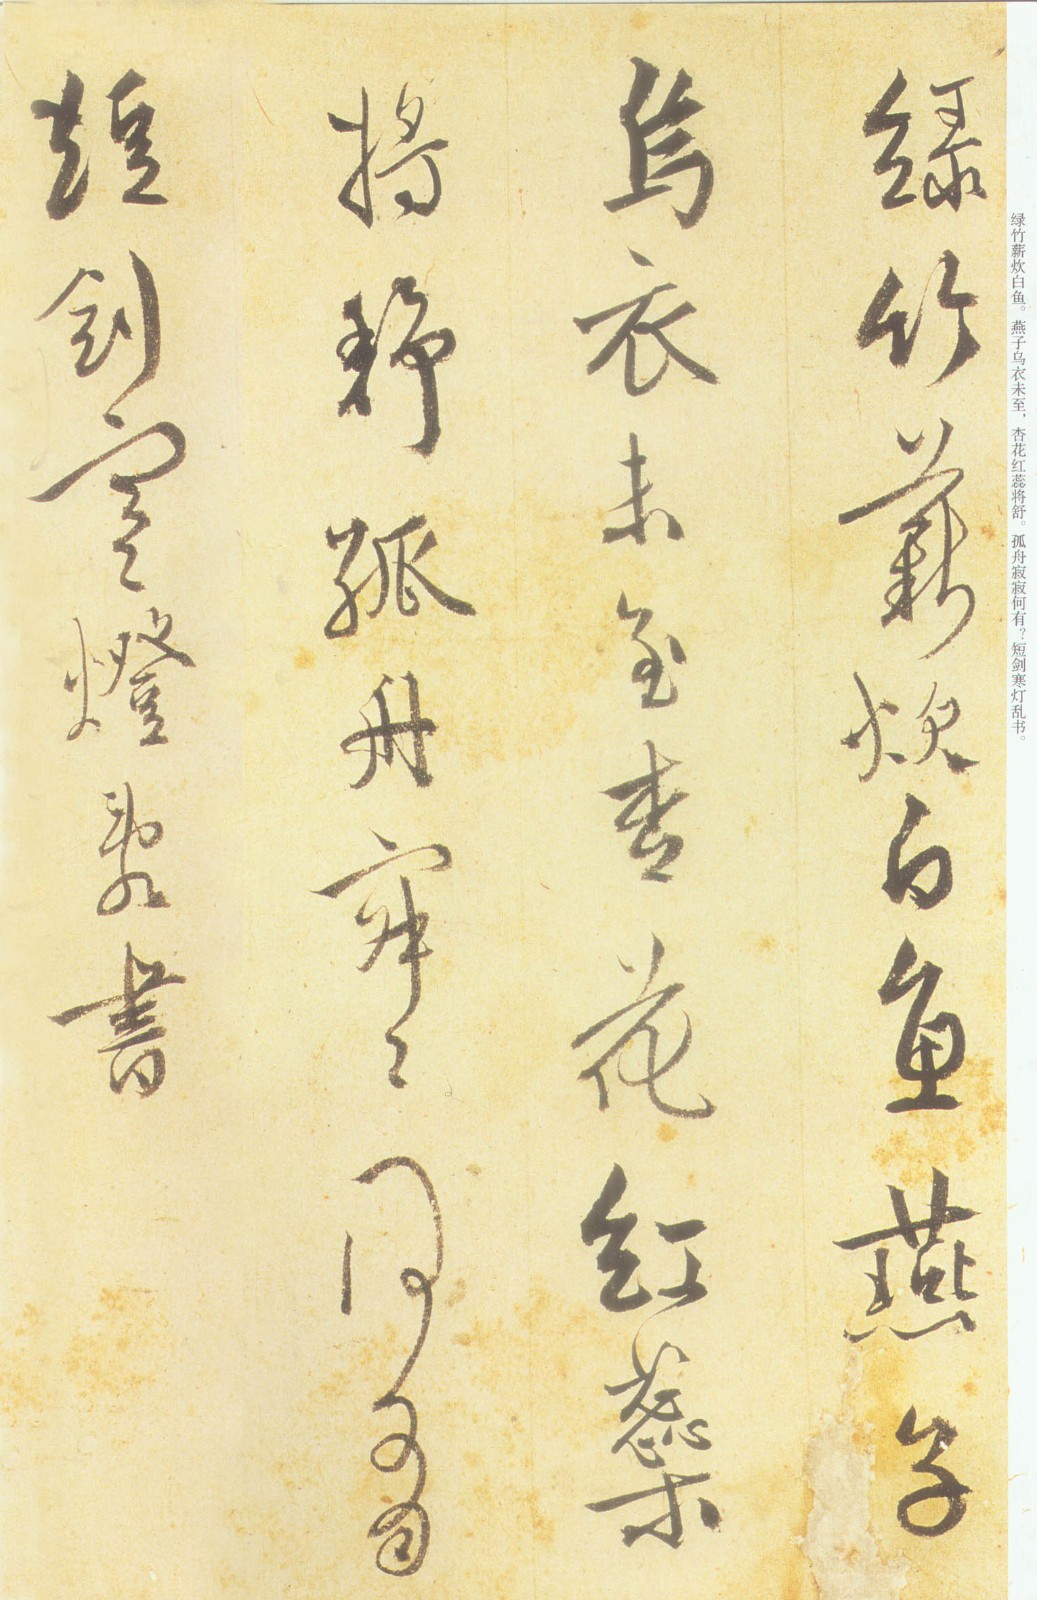 绿竹薪炊白鱼。燕子乌衣未至，杏花红蕊将舒。孤舟寂寂何有？短剑寒灯乱书。
緑竹薪炊白魚燕子
烏衣未至杏花紅蘂
將舒孤舟寂〻何有
短劍寒燈亂書